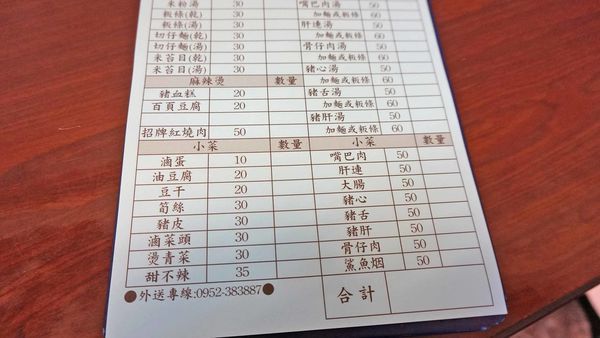 米粉湯 30
板條(乾) 30
板條(湯) 30
切仔麵(乾) 30
切仔麵(湯) 30
米苔目(乾) 30
米苔目(湯) 30
麻辣燙 數量
豬血糕 20
百頁豆腐 20
招牌紅燒肉 50
小菜 數量
滷蛋 10
油豆腐 20
豆干 20
筍絲 30
豬皮 30
滷菜頭 30
燙青菜 30
甜不辣 35
●外送專線:0952-383887●
嘴巴肉湯 50
加麵或板條 60
肝連湯 50
加麵或板條 60
骨仔肉湯 50
加麵或板條 60
豬心湯 50
加麵或板條 60
豬舌湯 50
加麵或板條 60
豬肝湯 50
加麵或板條 60
小菜 數量
嘴巴肉 50
肝連 50
大腸 50
豬心 50
豬舌 50
豬肝 50
骨仔肉 50
鯊魚烟 50
合計